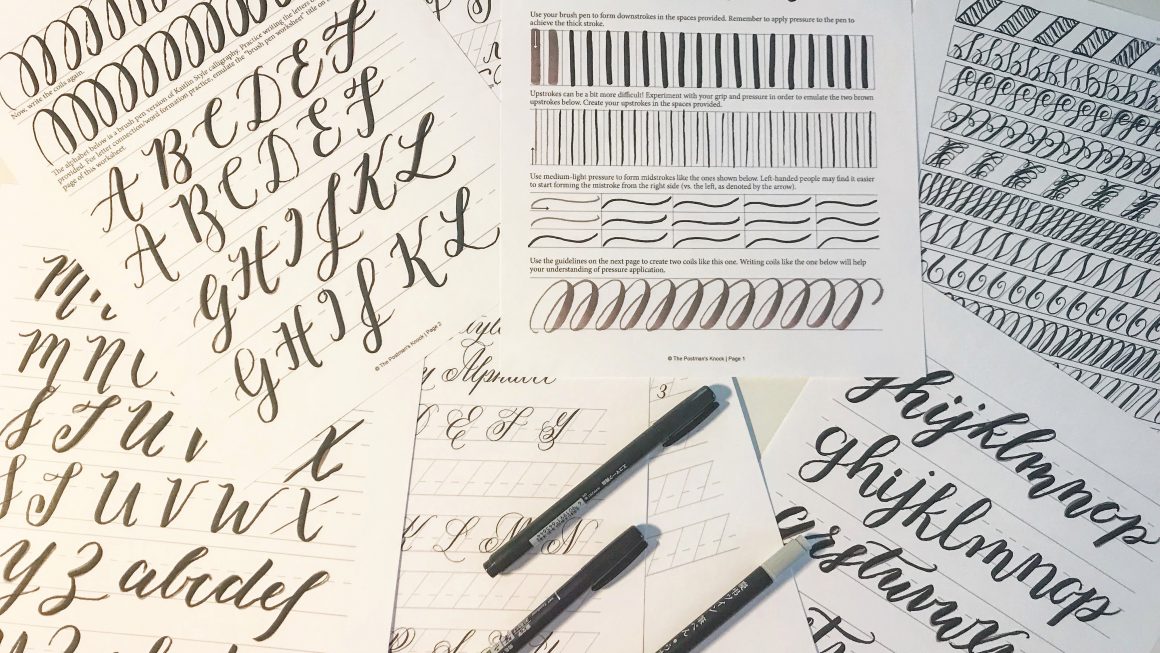 Now, write the coils again.
The alphabet below is a brush pen version of Kaitlin Style calligraphy. Practice writing the letters
provided. For letter connection/word formation practice, emulate the "brush pen worksheet" title on
page of this worksheet.
A B C D E F
A B C D E F
G H I J K L
G H I J K L
© The Postman's Knock | Page 2
Use your brush pen to form downstrokes in the spaces provided. Remember to apply pressure to the pen to
achieve the thick stroke.
Upstrokes can be a bit more difficult! Experiment with your grip and pressure in order to emulate the two brown
upstrokes below. Create your upstrokes in the spaces provided.
Use medium-light pressure to form midstrokes like the ones shown below. Left-handed people may find it easier
to start forming the mistroke from the right side (vs. the left, as denoted by the arrow).
Use the guidelines on the next page to create two coils like this one. Writing coils like the one below will help
your understanding of pressure application.
© The Postman's Knock | Page 1
M
M N
S T U
X
S T U V W X
Y Z abcdef
Alphabet
E F Y
3
K L M N
ghijklmnop
ghijklmnop
qrstuvwx